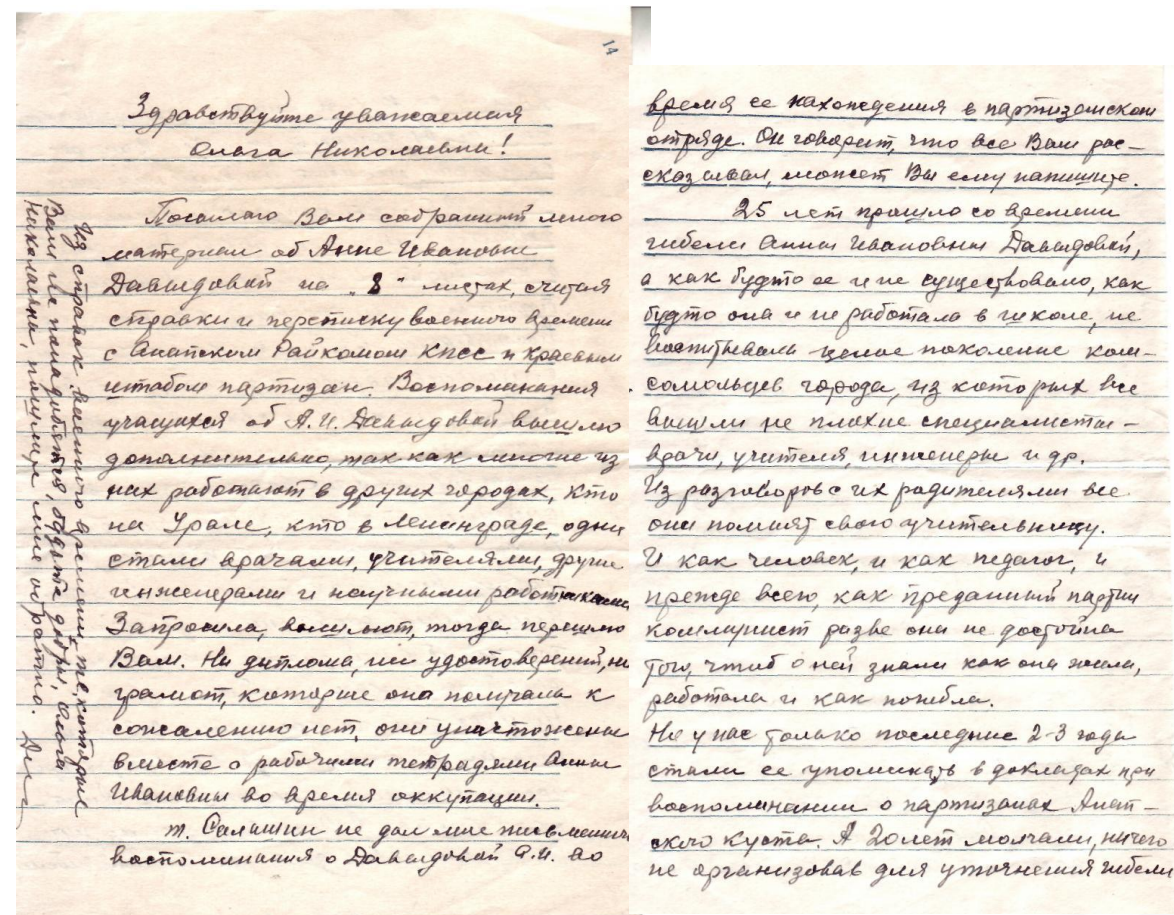 14
Здравствуйте уважаемая
Ольга Николаевна!
Посылаю Вам собранный мною
материал об Анне Ивановне
Давыдовой на "8" листах, считая
справки и переписку военного времени
с Анапским Райкомом КПСС и краевым
штабом партизан. Воспоминания
учащихся об А.И. Давыдовой вышлю
дополнительно, так как многие из
них работают в других городах, кто
на Урале, кто в Ленинграде, одни
стали врачами, учителями, другие
инженерами и научными работниками
Запросила, вышлют, тогда перешлю
Вам. Ни диплома, ни удостоверений, ни
грамот, которые она получала к
сожалению нет, они уничтожены
вместе с рабочими тетрадями Анны
Ивановны во время оккупации.
т. Салашин не дал мне письменного
воспоминания о Давыдовой А.И. во
Из справок военного времени, те, которые
Вам не понадобятся, будьте добры, Ольга
Николаевна, пришлите мне обратно.
время ее нахождения в партизанском
отряде. Он говорит, что все Вам рас-
сказывал, может Вы ему напишите.
25 лет прошло со времени
гибели Анны Ивановны Давыдовой,
а как будто ее и не существовало, как
будто она и не работала в школе, не
воспитывала целое поколение ком-
сомольцев города, из которых все
вышли не плохие специалисты -
врачи, учителя, инженеры и др.
Из разговоров с их родителями все
они помнят свою учительницу.
И как человек, и как педагог, и
прежде всего, как преданный партии
коммунист разве она не достойна
того, чтоб о ней знали как она жила,
работала и как погибла.
Но у нас только последние 2-3 года
стали ее упоминать в докладах при
воспоминании о партизанах Анап-
ского куста. А 20 лет молчали, ничего
не организовав для уточнения гибели